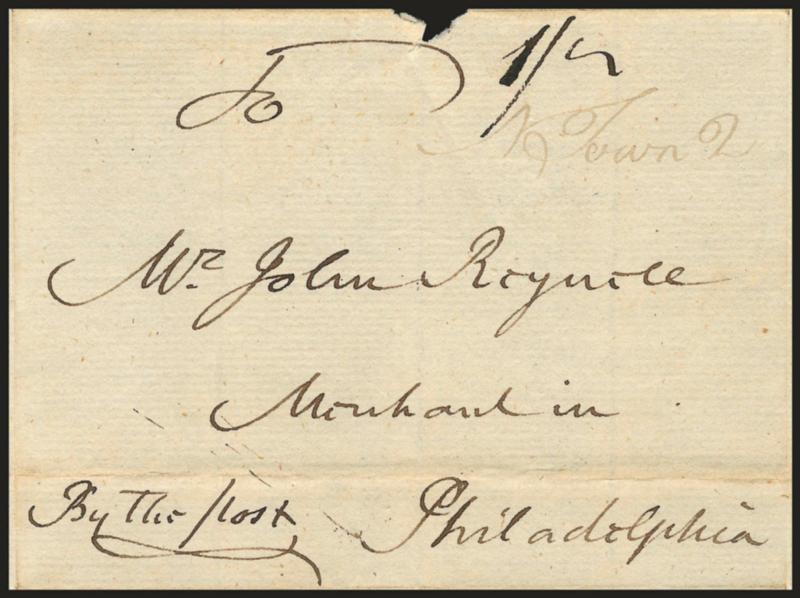 To
1/2
N Town 2
Mr. John Reynell
Merchant in
By the post
Philadelphia